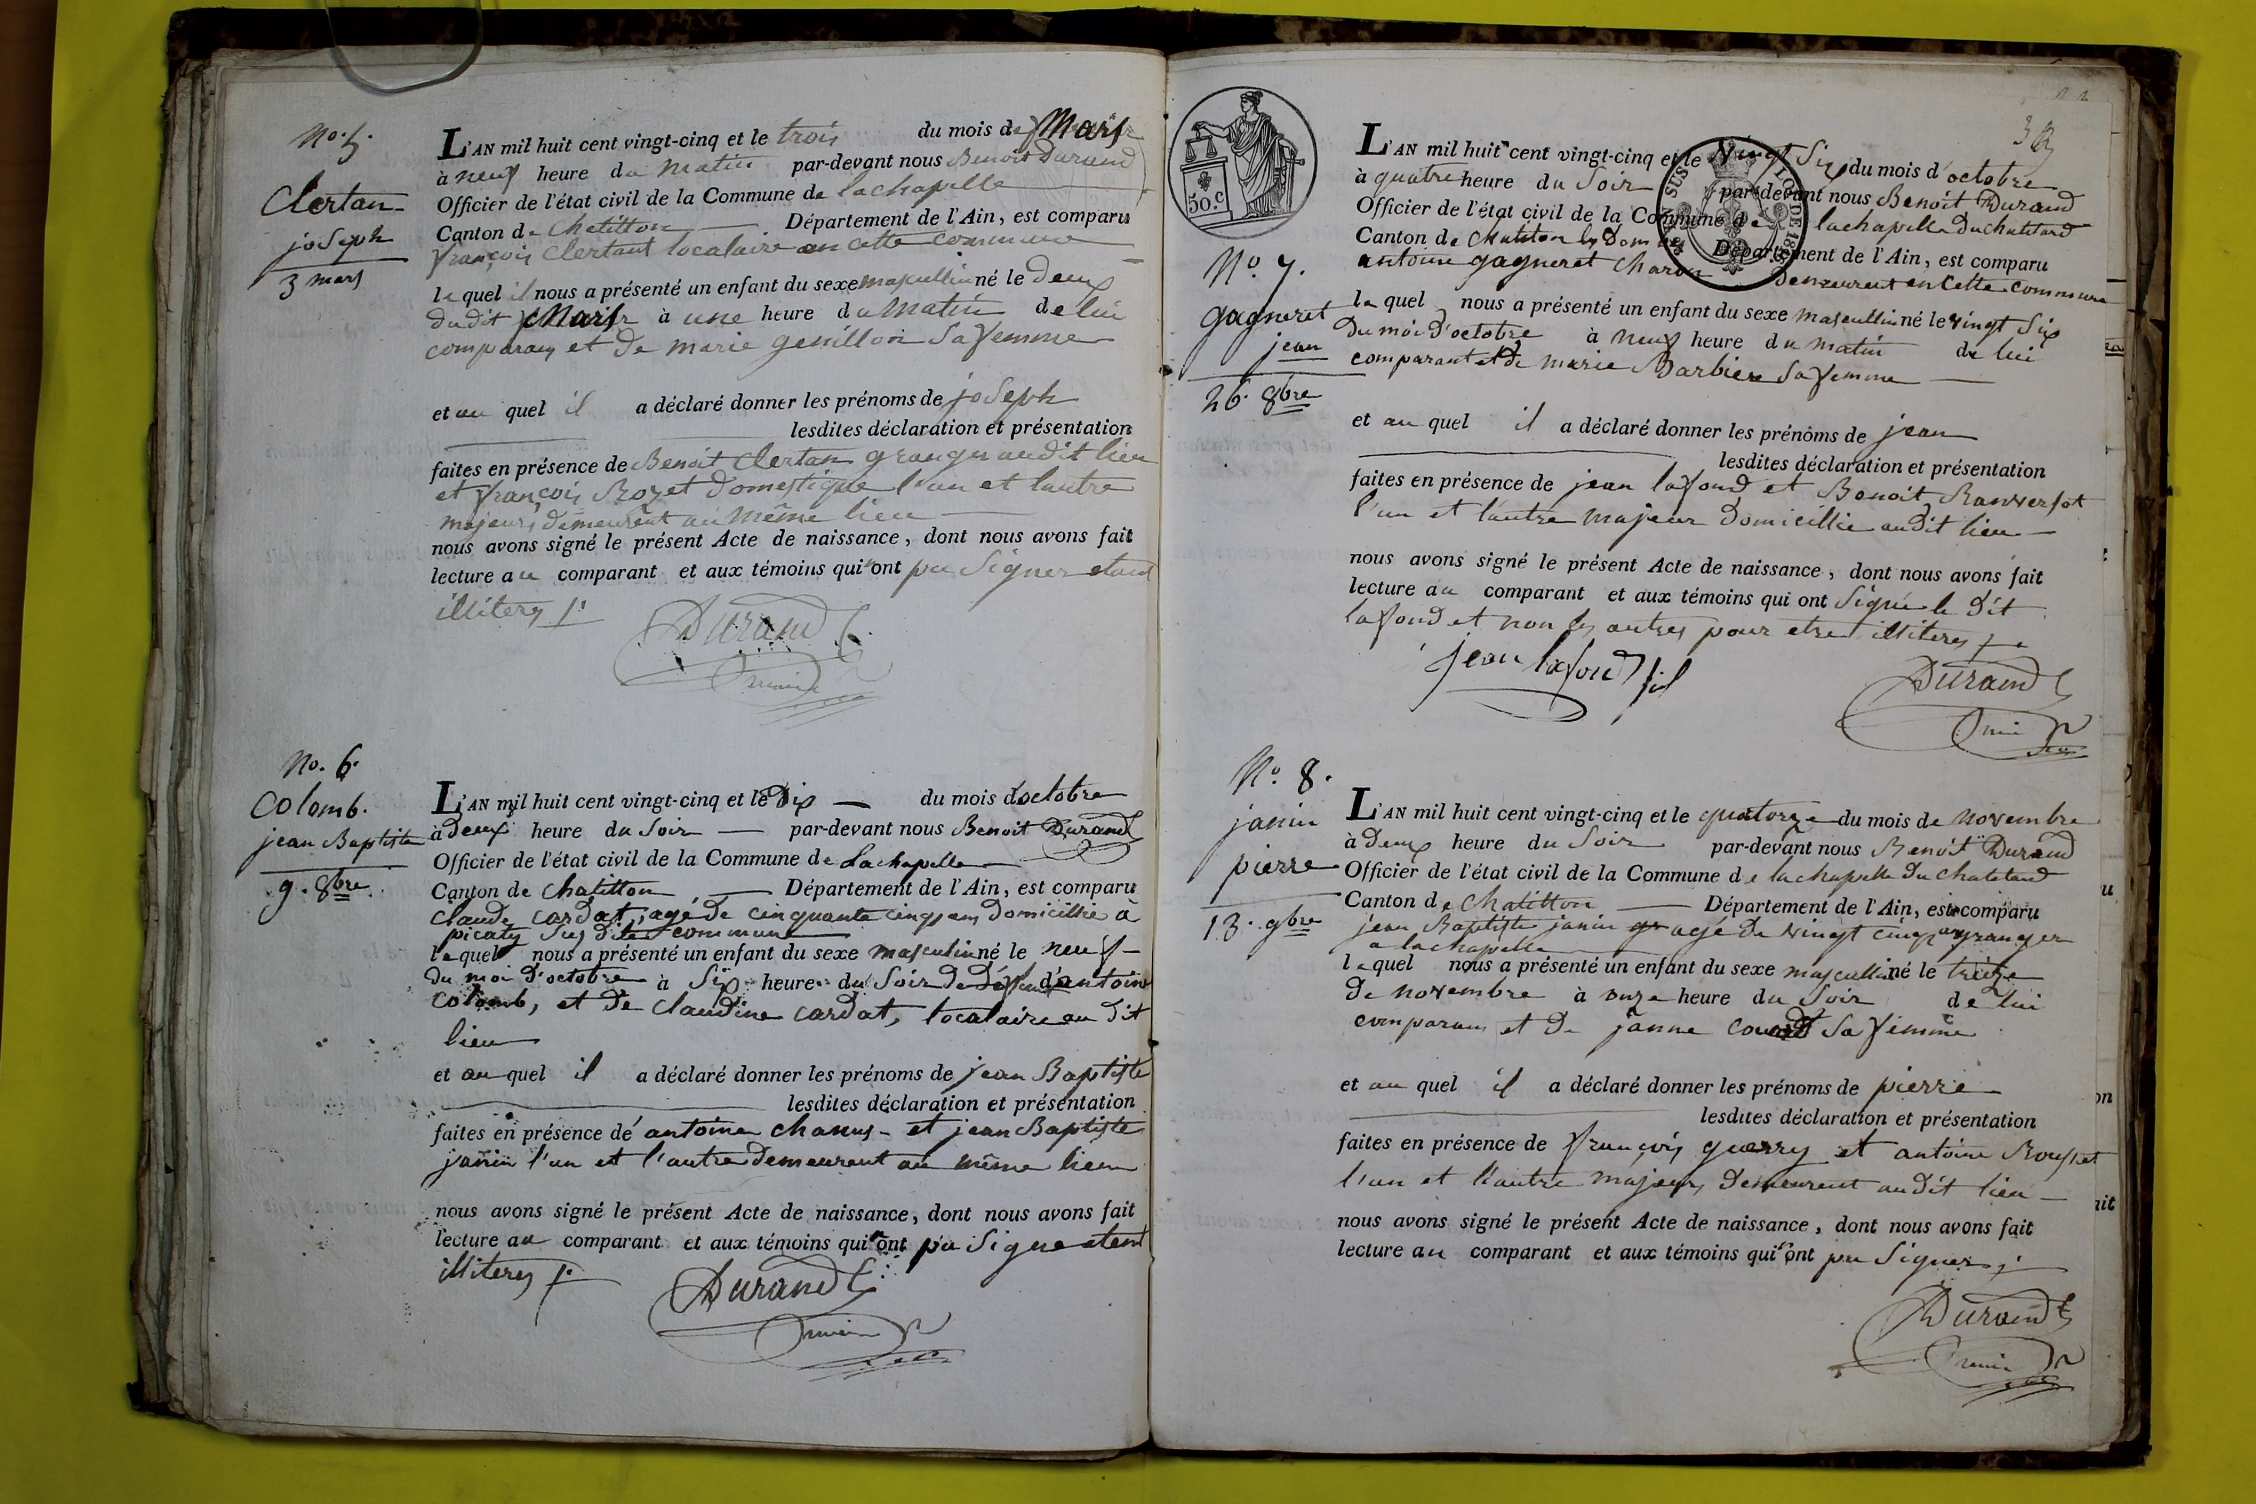 No. 5.
Clertan
joseph
3 mars
L'AN mil huit cent vingt-cinq et le trois du mois de Mars
à neuf heure du matin par-devant nous Benoit Durand
Officier de l'état civil de la Commune de lachapelle
Canton de Chatillon Département de l'Ain, est comparu
françois Clertant localaire en cette commune
lequel il nous a présenté un enfant du sexe mascullin né le deux
dudit Mars à une heure du matin de lui
comparan et de marie genillon sa femme
et au quel il a déclaré donner les prénoms de joseph
lesdites déclaration et présentation
faites en présence de Benoit Clertan granger audit lieu
et françois Rozet domestique l'un et lautre
majeurs demeurent au même lieu
nous avons signé le présent Acte de naissance, dont nous avons fait
lecture au comparant et aux témoins qui n'ont pu signer etant
illiterés
Durand
No. 6.
Colomb.
jean Baptiste
9. 8bre.
L'AN mil huit cent vingt-cinq et le dix du mois d'octobre
à deux heure du soir par-devant nous Benoit Durand
Officier de l'état civil de la Commune de Lachapelle
Canton de Chatillon Département de l'Ain, est comparu
claude cardat, agé de cinquante cinq ans domicillié à
picaty sus dite commune
lequel nous a présenté un enfant du sexe masculin né le neuf
du moi d'octobre à six heure du soir de d'antoine
colomb, et de claudine cardat, localaire au dit
lieu
et au quel il a déclaré donner les prénoms de jean Baptiste
lesdites déclaration et présentation
faites en présence de antoine chanus et jean Baptiste
janin l'un et l'autre demeurent au même lieu
nous avons signé le présent Acte de naissance, dont nous avons fait
lecture au comparant et aux témoins qui n'ont pu signe etent
illiterés
Durand
50.c
No. 7.
gagneret
jean
26. 8bre
L'AN mil huit cent vingt-cinq et le vingt Six du mois d'octobre
à quatre heure du Soir par-devant nous Benoit Durand
Officier de l'état civil de la Commune de lachapelle du chatelard
Canton de Chatillon les Dombes Département de l'Ain, est comparu
antoine gagneret charon demeurent en cette commune
lequel nous a présenté un enfant du sexe mascullin né le vingt Six
du moi d'octobre à neuf heure du matin de lui
comparant et de marie Barbier sa femme
et au quel il a déclaré donner les prénoms de jean
lesdites déclaration et présentation
faites en présence de jean lafond et Benoit Ranversot
l'un et l'autre majeur domicillié audit lieu
nous avons signé le présent Acte de naissance, dont nous avons fait
lecture au comparant et aux témoins qui ont signé le dit
lafond et non les autres pour etre illiterés
jean lafond fil
Durand
No. 8.
janin
pierre
13. 9bre
L'AN mil huit cent vingt-cinq et le quatorze du mois de novembre
à deux heure du Soir par-devant nous Benoit Durand
Officier de l'état civil de la Commune de lachapelle du chatelard
Canton de Chatillon Département de l'Ain, est comparu
jean Baptiste janin agé de vingt cinq ans granger
a lachapelle
lequel nous a présenté un enfant du sexe mascullin né le treize
de novembre à onze heure du Soir de lui
comparans et de janne sa femme
et au quel il a déclaré donner les prénoms de pierre
lesdites déclaration et présentation
faites en présence de françois guerry et antoine Rousset
l'un et l'autre majeurs demeurent audit lieu
nous avons signé le présent Acte de naissance, dont nous avons fait
lecture au comparant et aux témoins qui n'ont pu signer
Durand